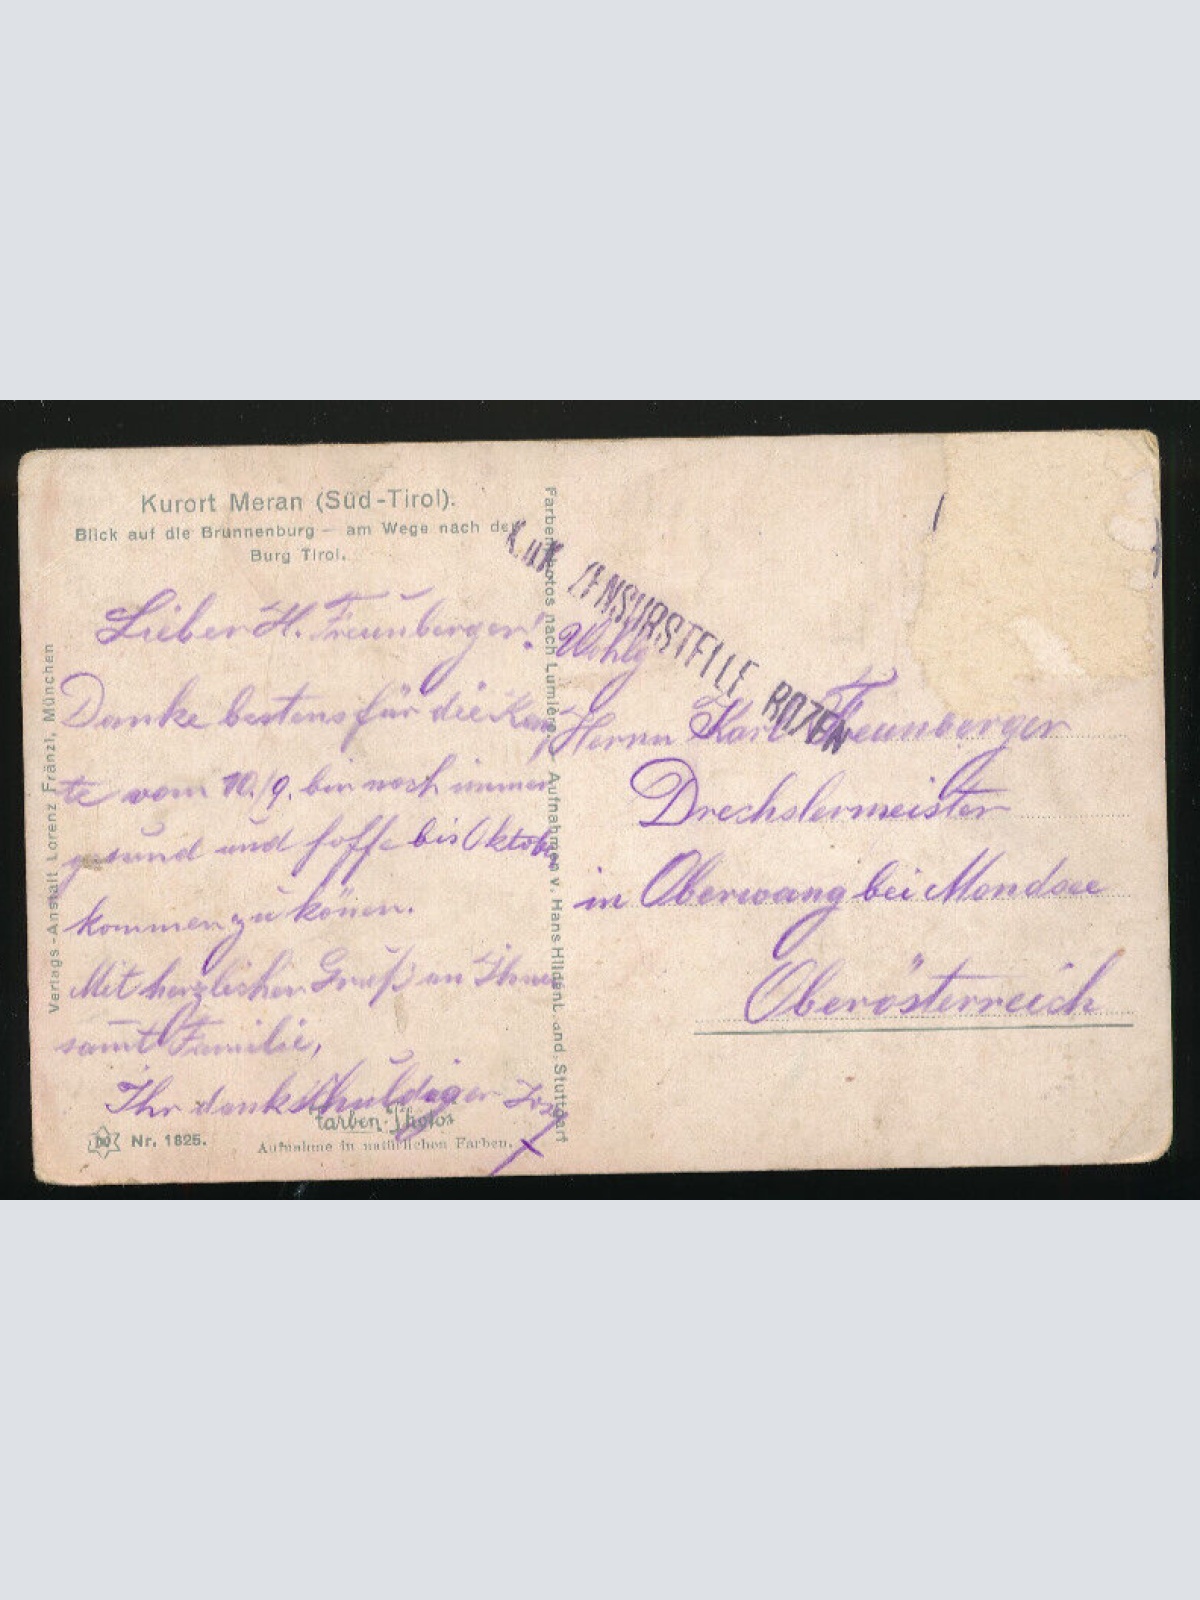 Kurort Meran (Süd-Tirol).
Blick auf die Brunnenburg – am Wege nach der
Burg Tirol.
Lieber H. Freunberger!
Danke bestens für die Kar
te vom 10./9. bin noch immer
gesund und hoffe bis Oktober
kommen zu können.
Mit herzlichen Gruß an Ihnen
samt Familie,
Ihr dankschuldiger
Farben-Photos
Nr. 1825.
Aufnahme in natürlichen Farben.
Verlags-Anstalt Lorenz Fränzl, München
Farbenphotos nach Lumière Aufnahmen v. Hans Hildenbrand, Stuttgart
K.u.K. ZENSURSTELLE BOZEN
Wohlg
Herrn Karl Freunberger
Drechslermeister
in Oberwang bei Mondsee
Oberösterreich